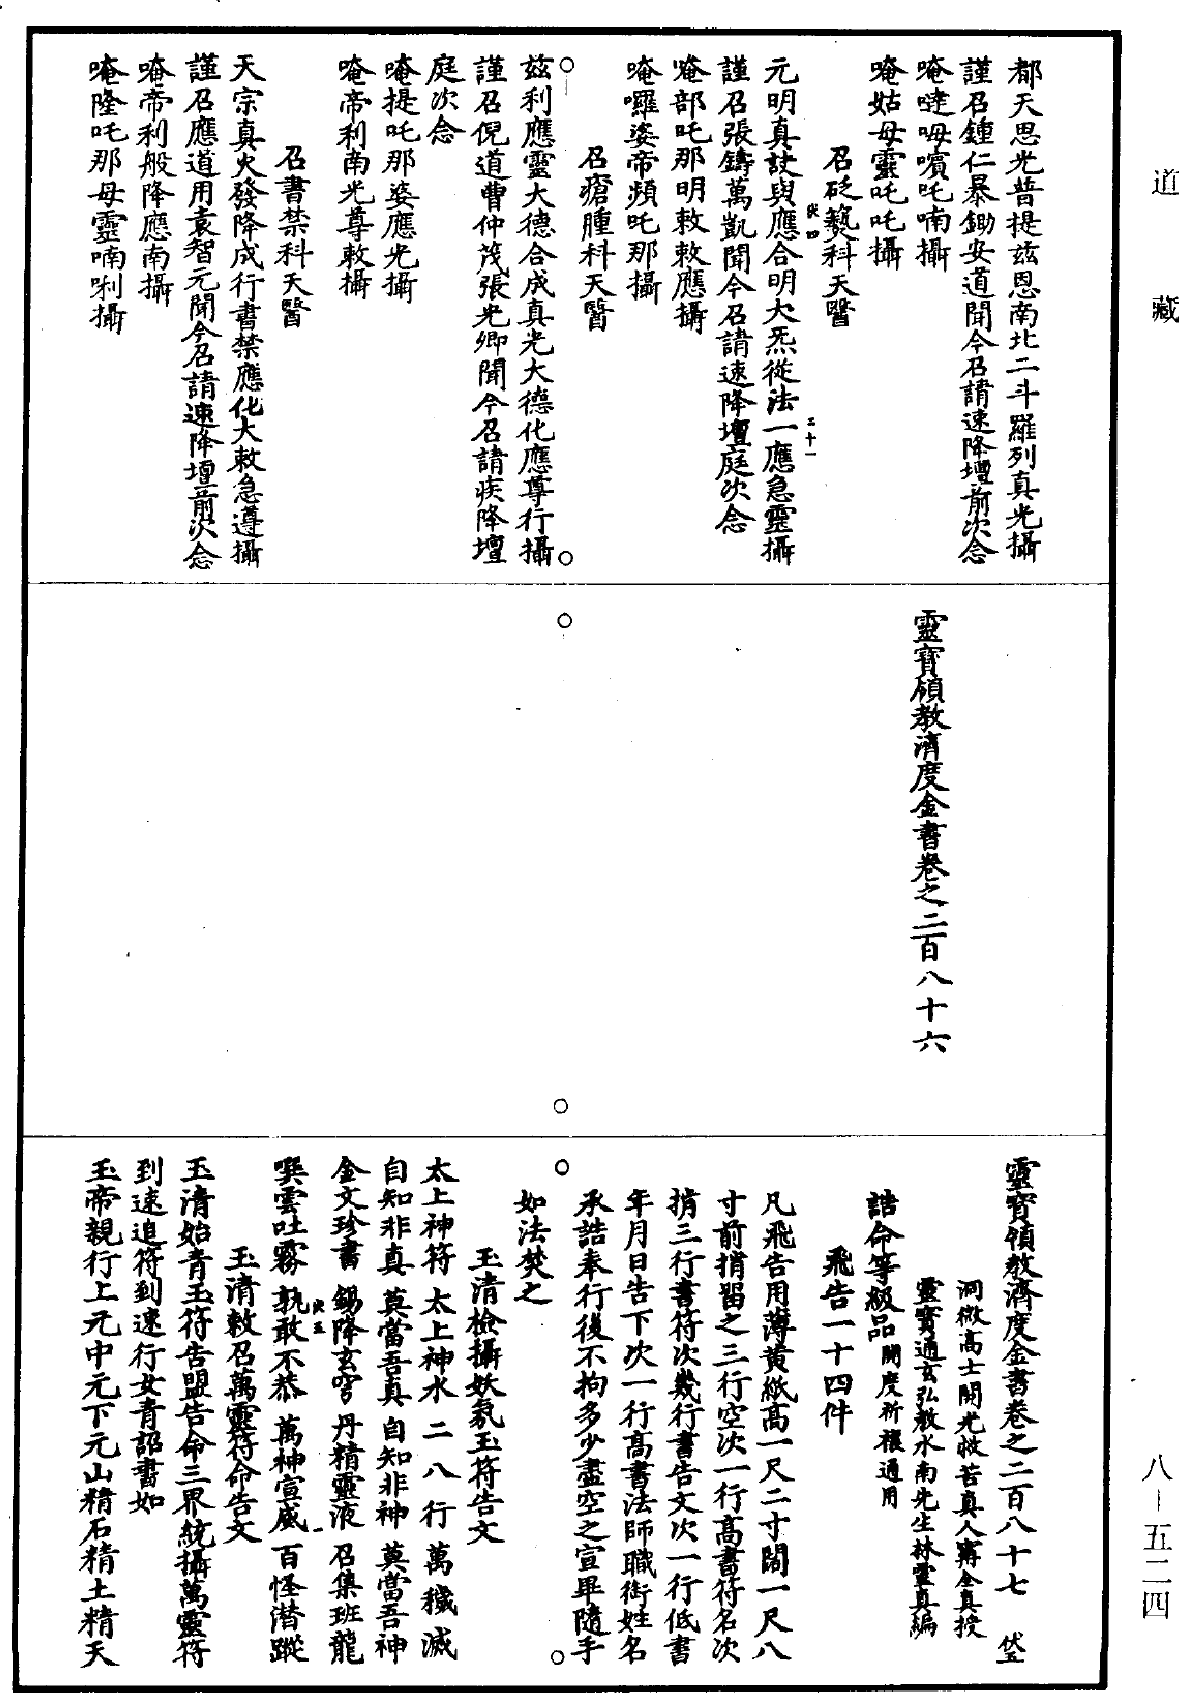 道藏
都天思光普提玆恩南北二斗羅列真光攝
謹召鍾仁暴鋤安道聞今召請速降壇前次念
唵噠呣嚬吒喃攝
唵姑母靈吒吒攝
召砭藝科天醫
元明真訣與應合明大炁從法一應急靈攝
謹召張鑄萬凱聞今召請速降壇庭次念
唵部吒那明敕敕應攝
唵囉娑帝頻吒那攝
召瘡腫科天醫
玆利應靈大德合成真光大德化應尊行攝
謹召倪道曹仲茂張光卿聞今召請疾降壇
庭次念
唵提吒那娑應光攝
唵帝利南光尊敕攝
召書禁科天醫
天宗真火發降成行書禁應化大敕急遵攝
謹召應道用袁智元聞今召請速降壇前次念
唵帝利般降應南攝
唵隆吒那母靈喃唎攝
靈寶領教濟度金書卷之二百八十六
靈寶領教濟度金書卷之二百八十七
洞微高士開光救苦真人甯全真授
靈寶通玄弘教水南先生林靈真編
誥命等級品開度祈禳通用
飛告一十四件
凡飛告用薄黃紙高一尺二寸闊一尺八
寸前捎留之三行空次一行高書符名次
捎三行書符次幾行書告文次一行低書
年月日告下次一行高書法師職銜姓名
承誥奉行後不拘多少盡空之宣畢隨手
如法焚之
玉清檢攝妖氛玉符告文
太上神符 太上神水 二八行 萬穢滅
自知非真 莫當吾真 自知非神 莫當吾神
金文珍書 錫降玄穹 丹精靈液 召集班龍
噀雲吐霧 孰敢不恭 萬神宣威 百怪潛蹤
玉清敕召萬靈符命告文
玉清始青玉符告盟告命三界統攝萬靈符
到速追符到速行女青詔書如
玉帝親行上元中元下元山精石精土精天
八—五二四